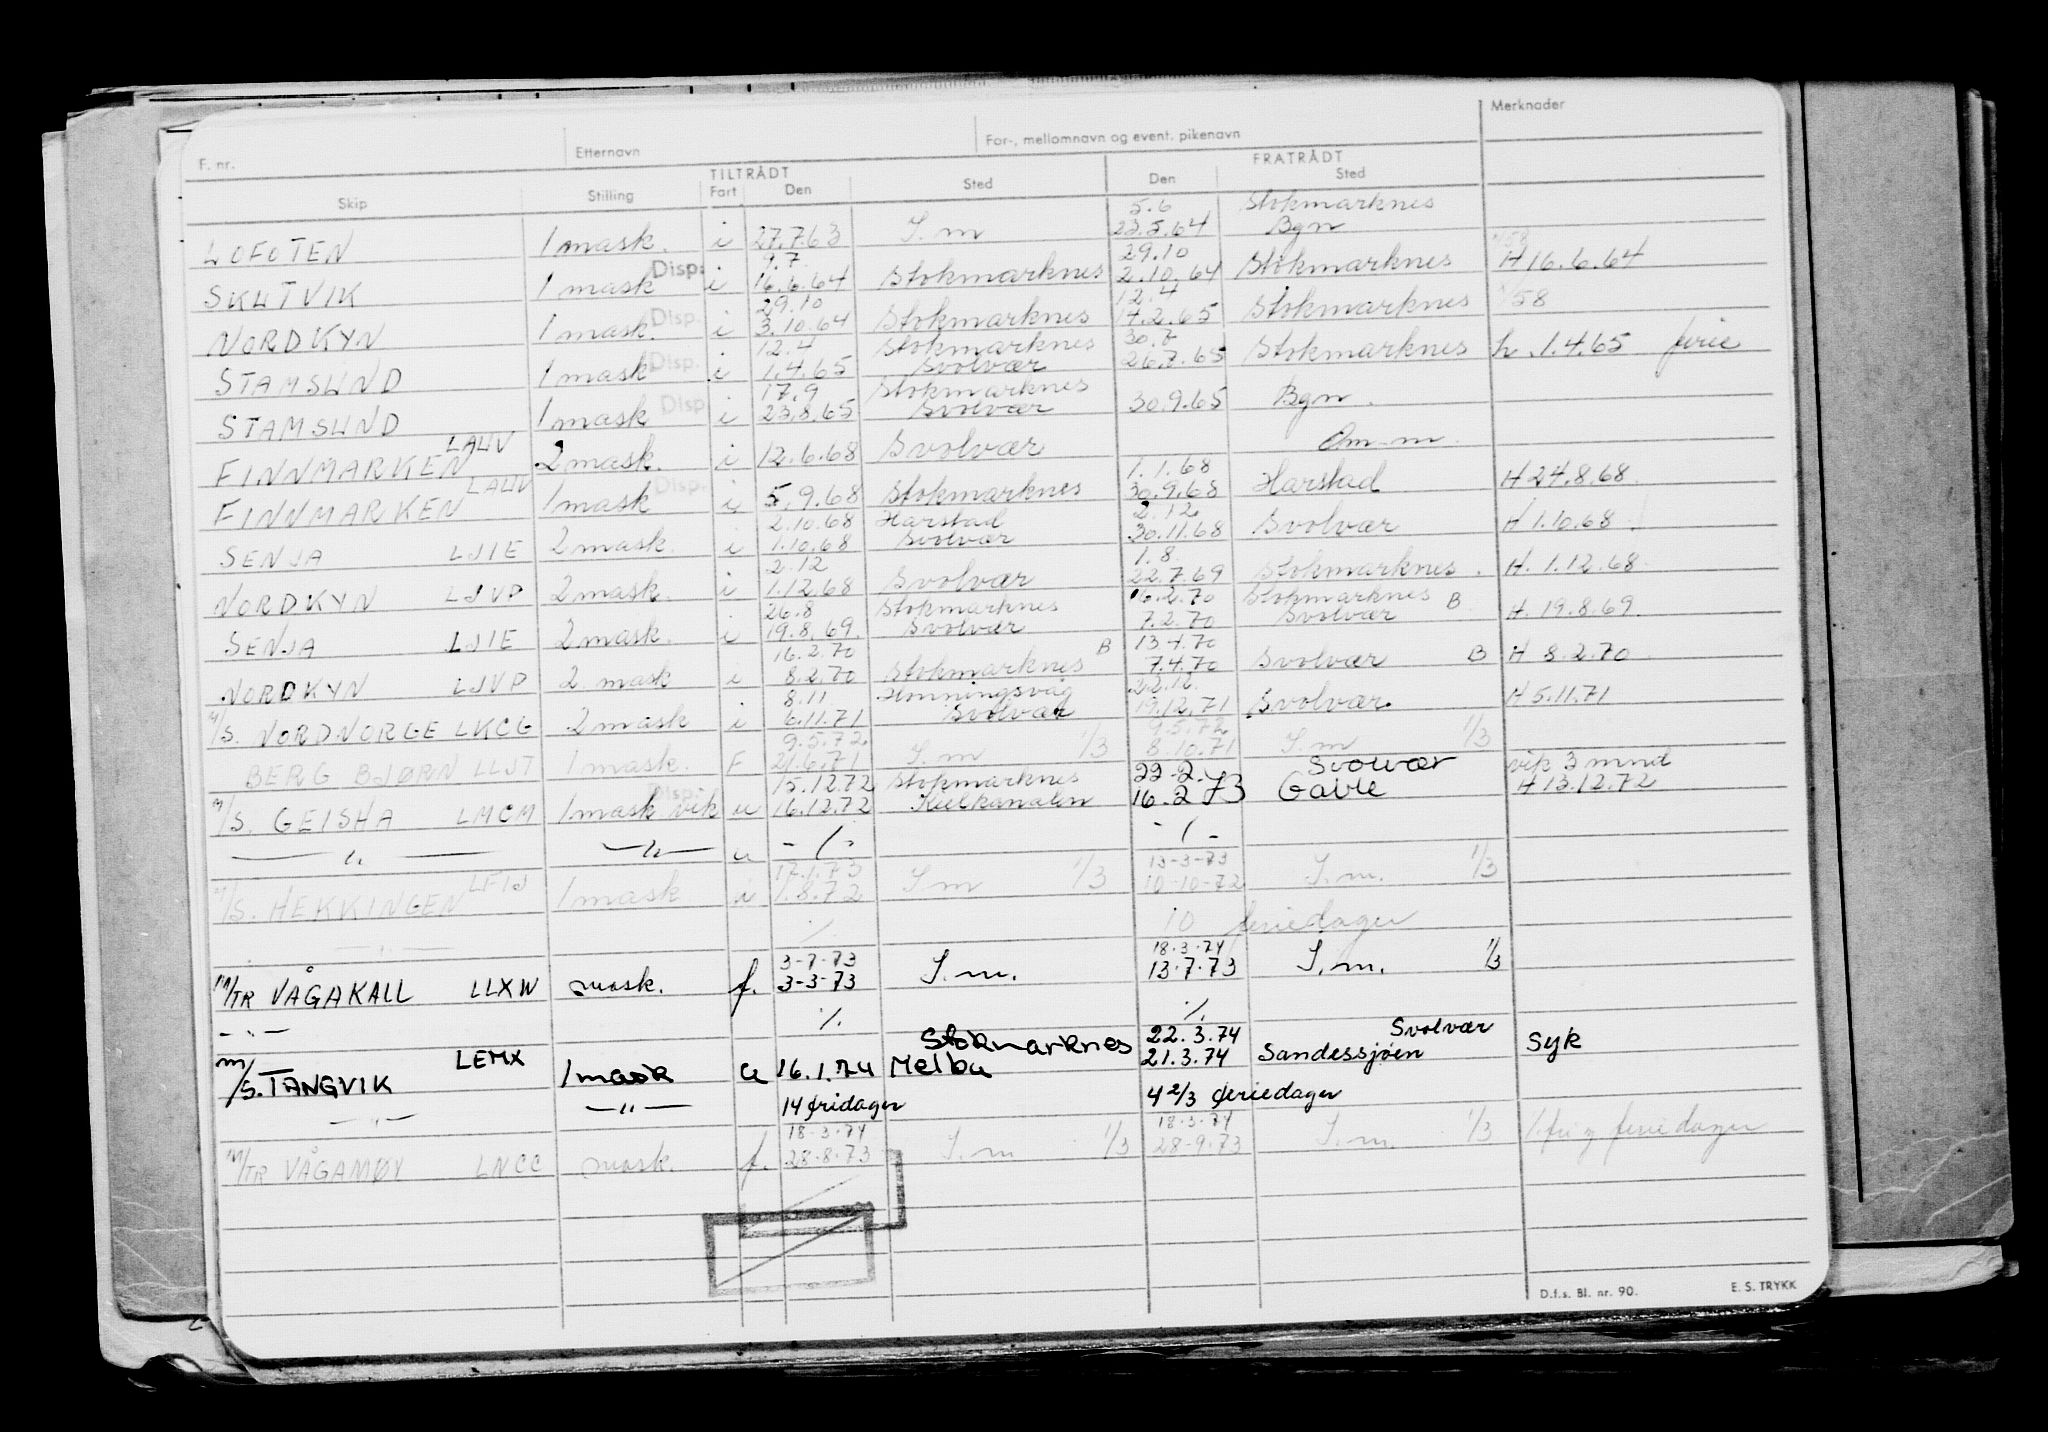 F. nr. Etternavn For-, mellomnavn og event. pikenavn Merknader
TILTRÅDT FRATRÅDT
Skip Stilling Fart Den Sted Den Sted
5.6 Stokmarknes
LOFOTEN 1 mask. i 27.7.63 S.m 23.5.64 Bgn
9.7 29.10
SKUTVIK 1 mask Disp. i 16.6.64 Stokmarknes 2.10.64 Stokmarknes H 16.6.64
29.10 12.4
NORDKYN 1 mask. Disp. i 3.10.64 Stokmarknes 14.2.65 Stokmarknes 58
12.4 Stokmarknes 30.7
STAMSUND 1 mask Disp. i 1.4.65 Svolvær 26.7.65 Stokmarknes h. 1.4.65 ferie
17.9 Stokmarknes
STAMSUND 1 mask Disp i 23.8.65 Svolvær 30.9.65 Bgn.
LAUV Om-m.
FINNMARKEN 2 mask. i 12.6.68 Svolvær
LAUV 1.1.68
FINNMARKEN 1 mask Disp. i 5.9.68 Stokmarknes 30.9.68 Harstad H 24.8.68.
2.10.68 Harstad 2.12
SENJA LJIE 2 mask. i 1.10.68 Svolvær 30.11.68 Svolvær H 1.10.68
2.12 1.8.
NORDKYN LJVP 2 mask. i 1.12.68 Svolvær 22.7.69 Stokmarknes. H. 1.12.68.
26.8 Stokmarknes 16.2.70 Stokmarknes
SENJA LJIE 2 mask. i 19.8.69. Svolvær 7.2.70 Svolvær B H. 19.8.69.
16.2.70 B 13.4.70
NORDKYN LJVP 2. mask i 8.2.70 Stokmarknes 7.4.70 Svolvær B H 8.2.70
8.11 Honningsvåg 22.12.
M/S. NORDNORGE LKCG 2 mask i 6.11.71 Svolvær 19.12.71 Svolvær. H 5.11.71
9.5.72 9.5.72
BERG BJØRN LLJT 1 mask. F 21.6.71 S.m 1/3 8.10.71 S.m 1/3
15.12.72 Stokmarknes 22.2. Svolvær vik 3 mnd
M/S. GEISHA LMCM 1 mask vik Disp. u 16.12.72 Kielkanalen 16.2 73 Gavle H 13.12.72
— " — — " — u - / - - / -
17.1.73 13-3-73
M/S. HEKKINGEN LFIJ 1 mask i 1.8.72 S.m 1/3 10-10-72 S.m. 1/3
— " — ./. 10 feriedager
3-7-73 18.3.74
M/TR VÅGAKALL LLXW mask. f. 3-3-73 S.m. 13.7.73 S.m. 1/3
- " - ./. ./.
Stokmarknes 22.3.74 Svolvær
M/S. TANGVIK LEMX 1 mask u 16.1.74 Melbu 21.3.74 Sandessjøen Syk
- " - — " — 14 fridager 4 2/3 feriedager
18.3.74 18.3.74
M/TR VÅGAMØY LNCC mask. f. 28.8.73 S.m 1/3 28-9.73 S.m. 1/3 feriedager
D.f.s. Bl. nr. 90. E. S. TRYKK